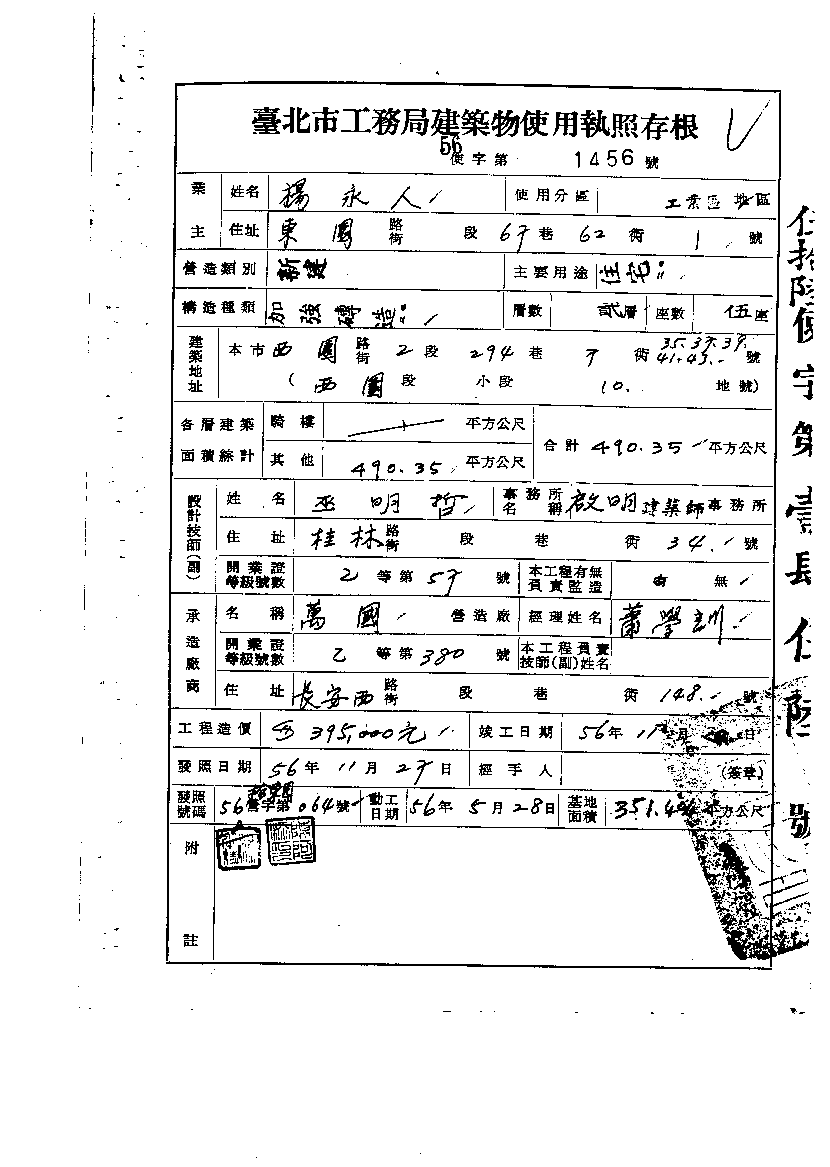 臺北市工務局建築物使用執照存根
56使字第 1456 號
業主 姓名 楊永人 使用分區 工業區 地區
住址 東園 路街 段 67 巷 62 衖 1 號
營造類別 新建 主要用途 住宅
構造種類 加強磚造 層數 貳層 座數 伍座
建築地址 本市西園 路街 2段 294巷 弄 衖 35.37.39.41.43. 號
(西園 段 小段 10. 地號)
各層建築面積綜計 騎樓 平方公尺 合計 490.35 平方公尺
其他 490.35 平方公尺
設計技師(副) 姓名 巫明哲 事務所名稱 啟明建築師事務所
住址 桂林 路街 段 巷 衖 34. 號
開業證等級號數 乙 等第 57 號 本工程有無負責監造 有 無
承造廠商 名稱 萬國 營造廠 經理姓名 蕭學訓
開業證等級號數 乙 等第 380 號 本工程負責技師(副)姓名
住址 長安西 路街 段 巷 衖 148. 號
工程造價 395,000元 竣工日期 56年 11 月 日
發照日期 56年 11月 27日 經手人 (簽章)
發照號碼 56營字第064號 動工日期 56年 5月 28日 基地面積 351.44 平方公尺
附註
伍拾陸使字第壹肆伍陸號